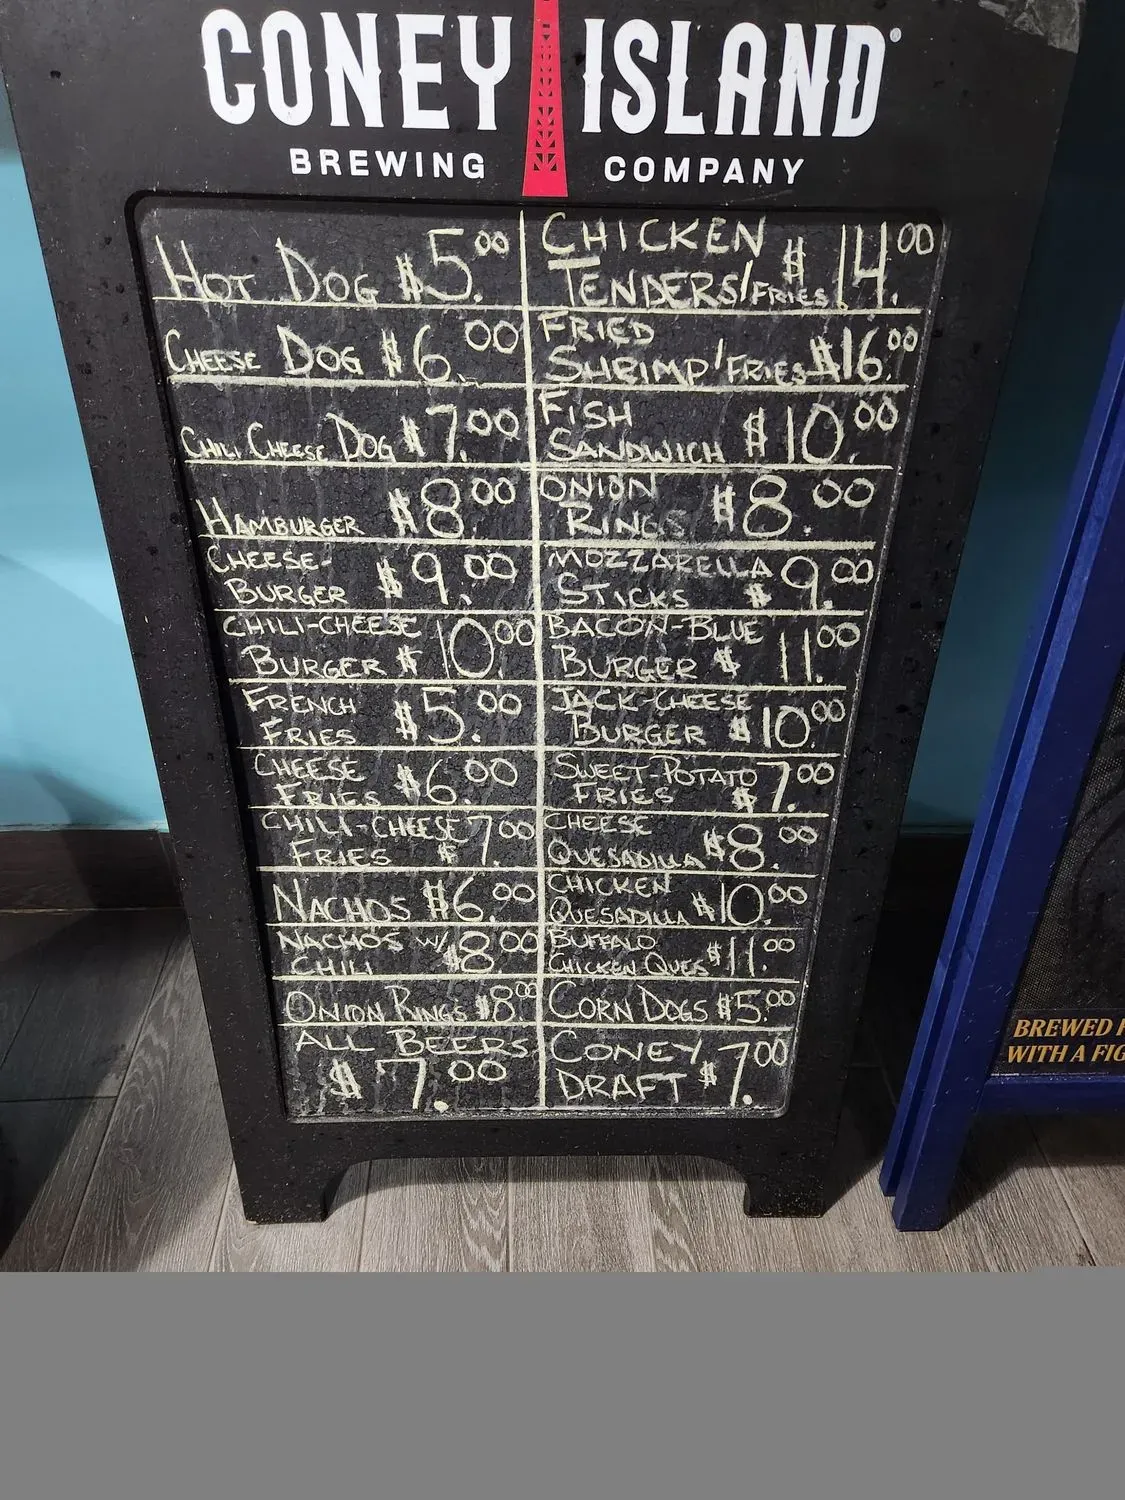 CONEY ISLAND®
BREWING COMPANY
HOT DOG $5.00
CHEESE DOG $6.00
CHILI CHEESE DOG $7.00
HAMBURGER $8.00
CHEESE-
BURGER $9.00
CHILI-CHEESE
BURGER $10.00
FRENCH
FRIES $5.00
CHEESE
FRIES $6.00
CHILI-CHEESE
FRIES $7.00
NACHOS $6.00
NACHOS W/
CHILI $8.00
ONION RINGS $8.00
ALL BEERS
$7.00
CHICKEN
TENDERS/FRIES $14.00
FRIED
SHRIMP/FRIES $16.00
FISH
SANDWICH $10.00
ONION
RINGS $8.00
MOZZARELLA
STICKS $9.00
BACON-BLUE
BURGER $11.00
JACK-CHEESE
BURGER $10.00
SWEET-POTATO
FRIES $7.00
CHEESE
QUESADILLA $8.00
CHICKEN
QUESADILLA $10.00
BUFFALO
CHICKEN QUES $11.00
CORN DOGS $5.00
CONEY
DRAFT $7.00
BREWED
WITH A